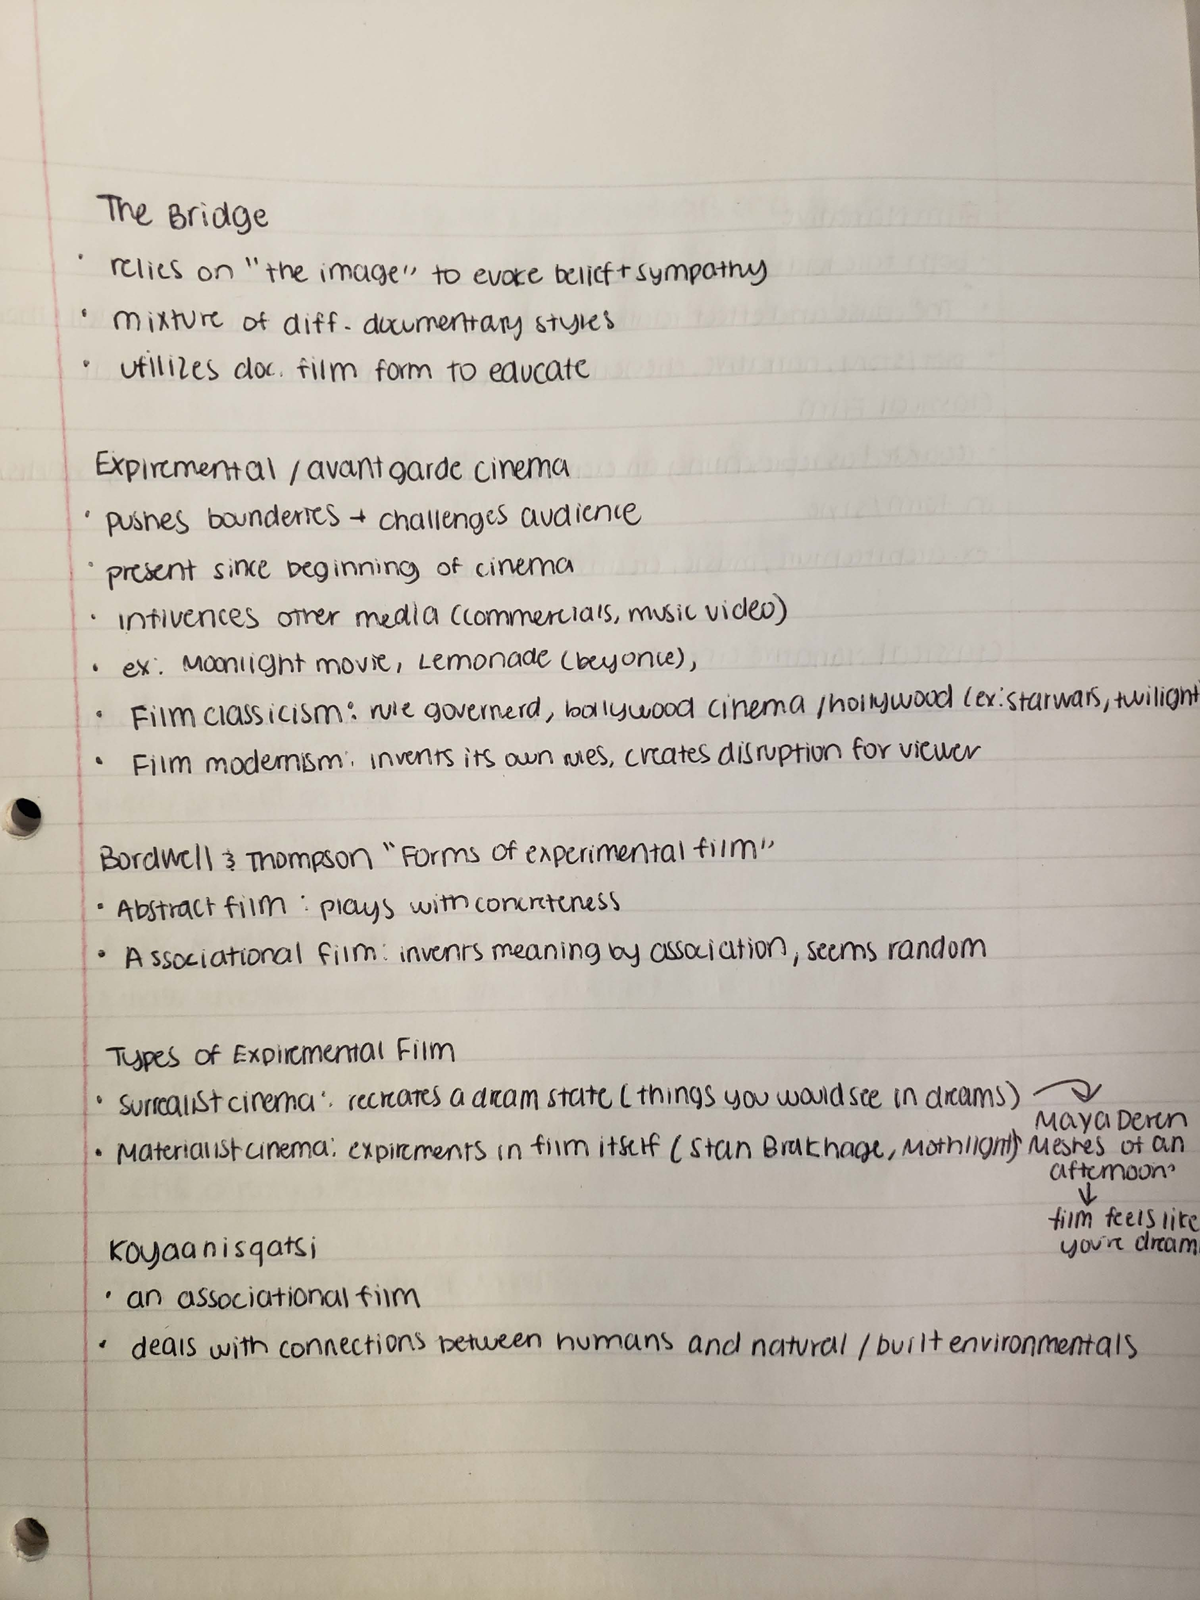 The Bridge
· relies on "the image" to evoke belief + sympathy
· mixture of diff. documentary styles
· utilizes doc. film form to educate
Expiremental / avant garde cinema
· pushes bounderies + challenges audience
· present since beginning of cinema
· influences other media (commercials, music video)
· ex: Moonlight movie, Lemonade (beyonce),
· Film classicism: rule governerd, bollywood cinema / hollywood (ex: starwars, twilight
· Film modernism: invents its own rules, creates disruption for viewer
Bordwell & Thompson "Forms of experimental film"
· Abstract film : plays with concreteness
· Associational film: invents meaning by association, seems random
Types of Expiremental Film
· surrealist cinema: recreates a dream state (things you would see in dreams) →
· Materialist cinema: expirements in film itself (Stan Brakhage, Mothlight)
Maya Deren
Meshes of an
afternoon"
↓
film feels like
you're dream
Koyaanisqatsi
· an associational film
· deals with connections between humans and natural / built environmentals